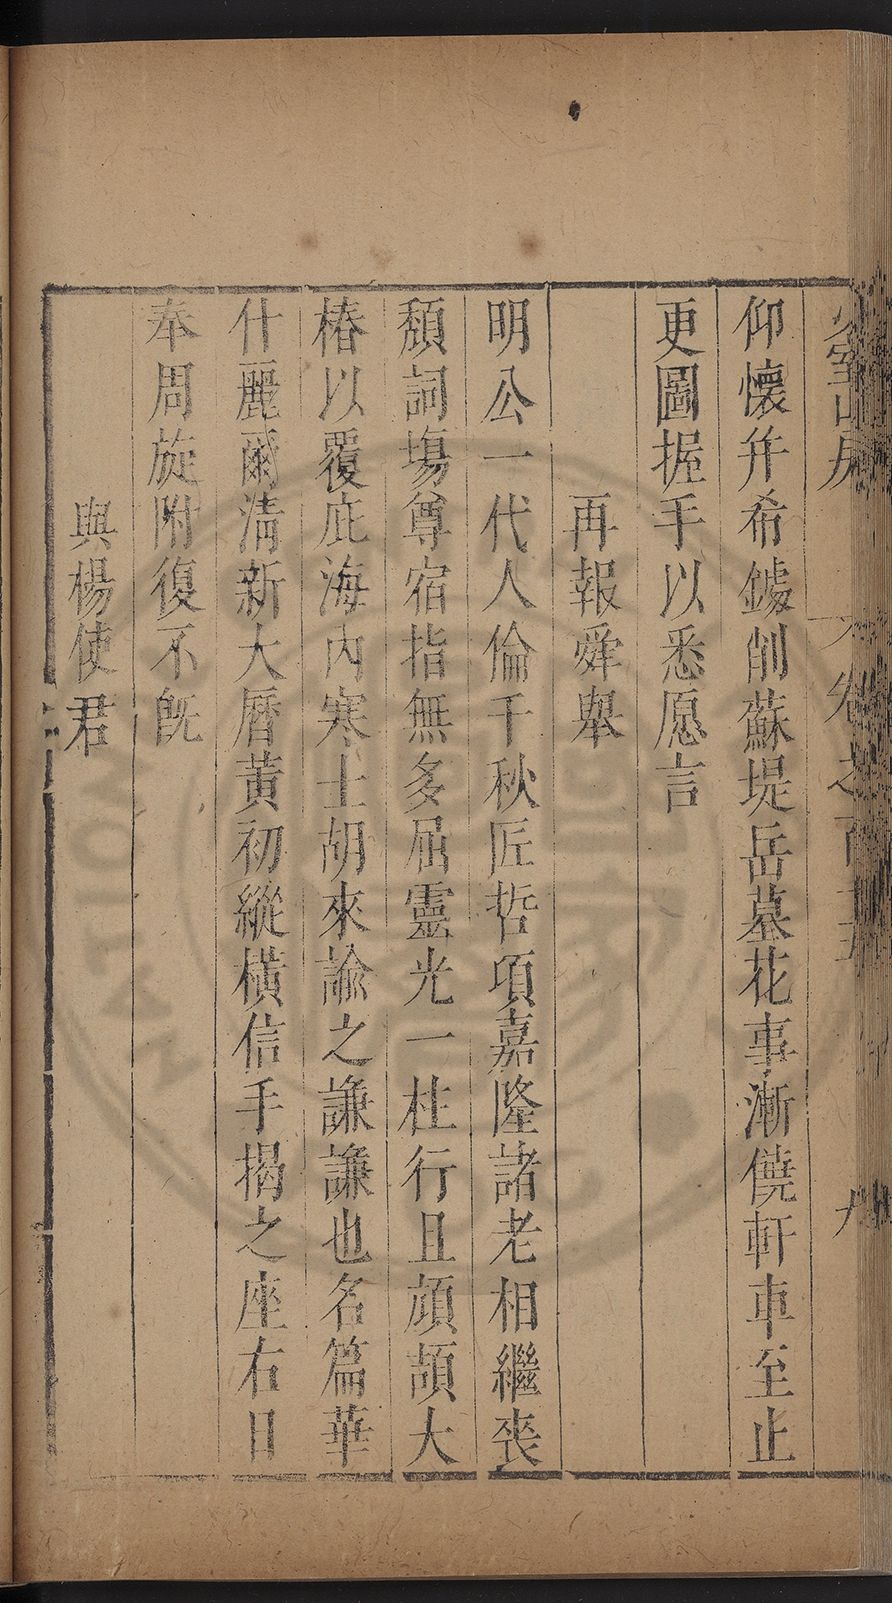 少室山房
卷之百十五
九
仰懷并希鐻削蘇堤岳墓花事漸饒軒車至止
更圖握手以悉愿言
再報舜舉
明公一代人倫千秋匠哲項嘉隆諸老相繼喪
頹詞塲尊宿指無多屈靈光一柱行且頎頡大
椿以覆庇海內寒士胡來諭之謙謙也名篇華
什麗爾淸新大曆黃初縱橫信手揭之座右日
奉周旋附復不旣
與楊使君